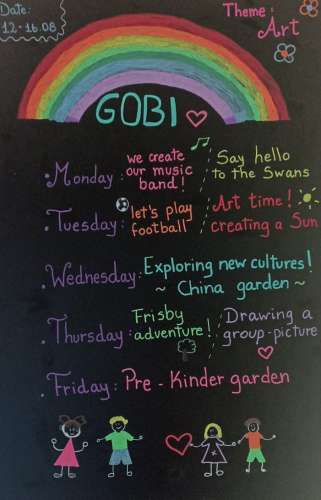 Date:
12-16.08
Theme:
Art
GOBI
Monday: we create our music band! Say hello to the Swans
Tuesday: let's play football Art time! creating a Sun
Wednesday: Exploring new cultures!
~ China garden ~
Thursday: Frisby adventure! Drawing a group-picture
Friday: Pre-Kinder garden